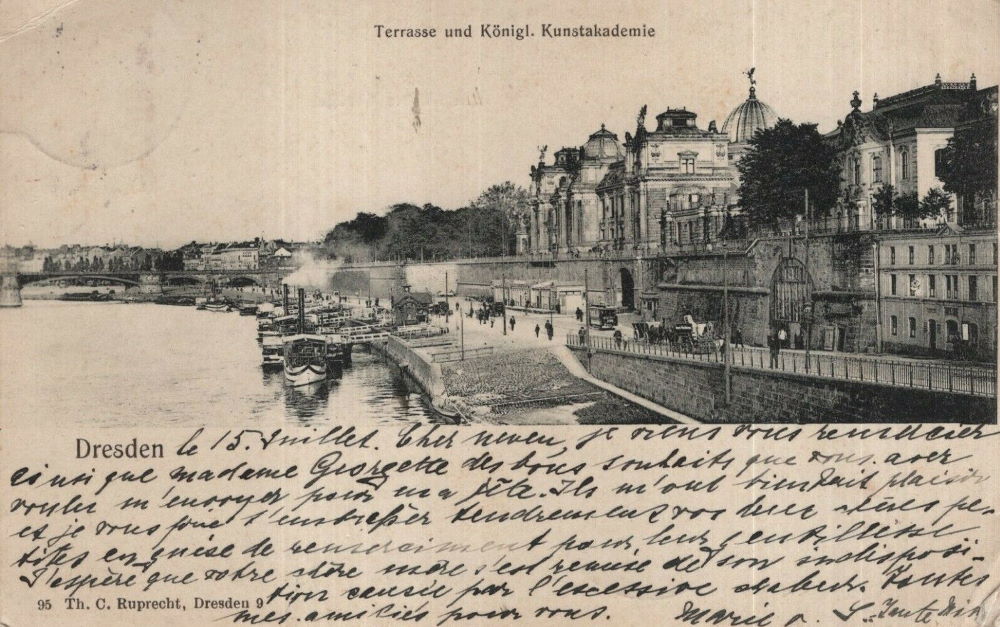 Terrasse und Königl. Kunstakademie
Dresden le 15. Juillet. Cher neveu, je viens vous remercier
ainsi que madame Georgette des bons souhaits que vous avez
voulu m'envoyer pour ma fête. Ils m'ont bien fait plaisir
et je vous prie d'embrasser tendrement vos deux chères pe-
tites en guise de remerciment pour leur gentillesse
J'espère que votre chère mère s'est remise de son indisposi-
tion causée par l'excessive chaleur. Toutes
mes amitiés pour vous. Marie v.
95 Th. C. Ruprecht, Dresden 9